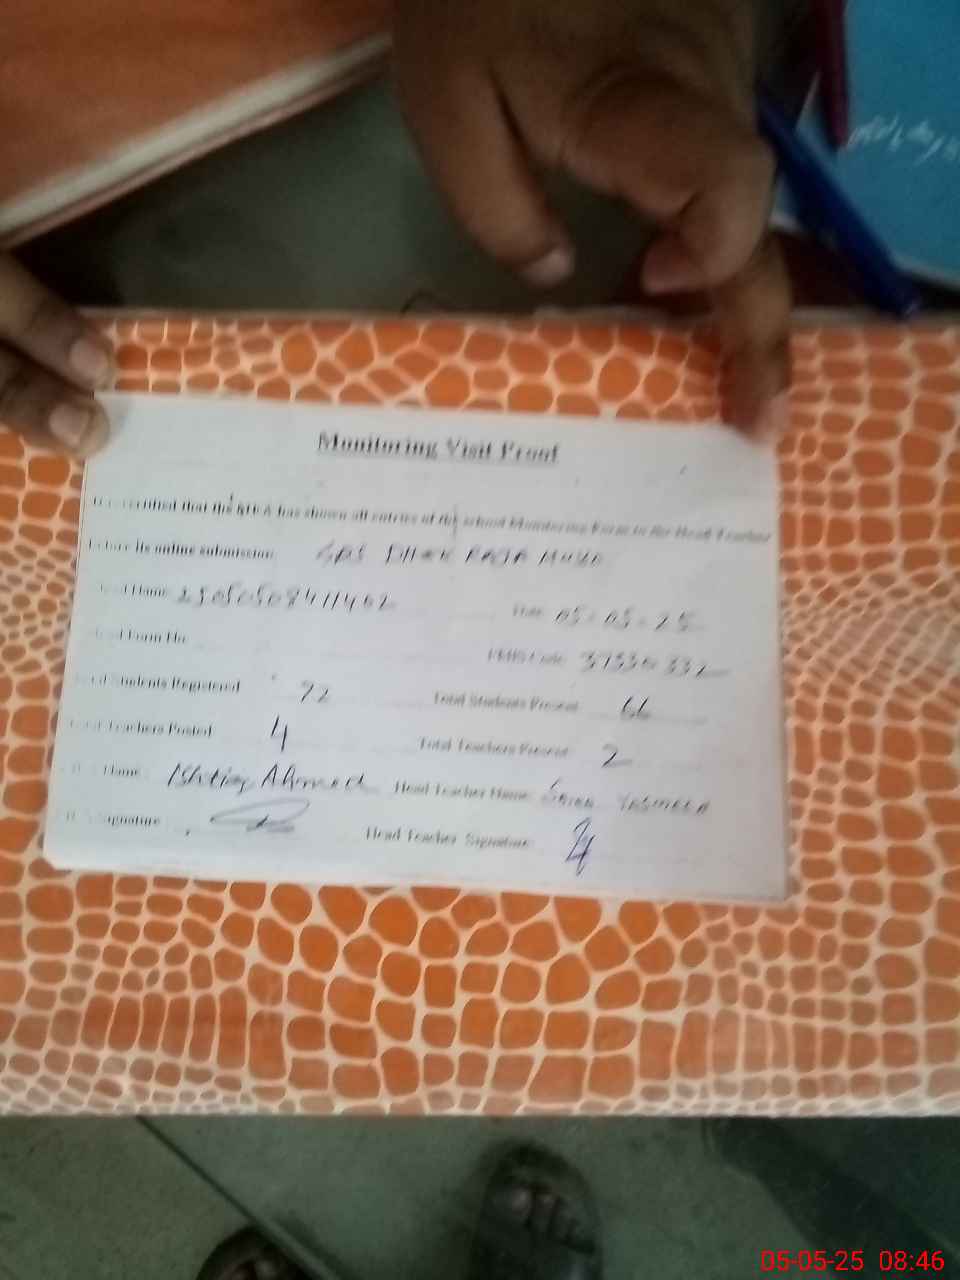 Monitoring Visit Proof
that the has shown all entries of the school Monitoring Form to the Head Teacher
before its online submission GPS DHOK RAJA
Name 25050508411402 Date 05-05-25
Form No EMIS Code
Students Registered 72 Total Students Present 66
Teachers Posted 4 Total Teachers Present 2
Name Ishtiaq Ahmed Head Teacher Name
Signature Head Teacher Signature
05-05-25 08:46